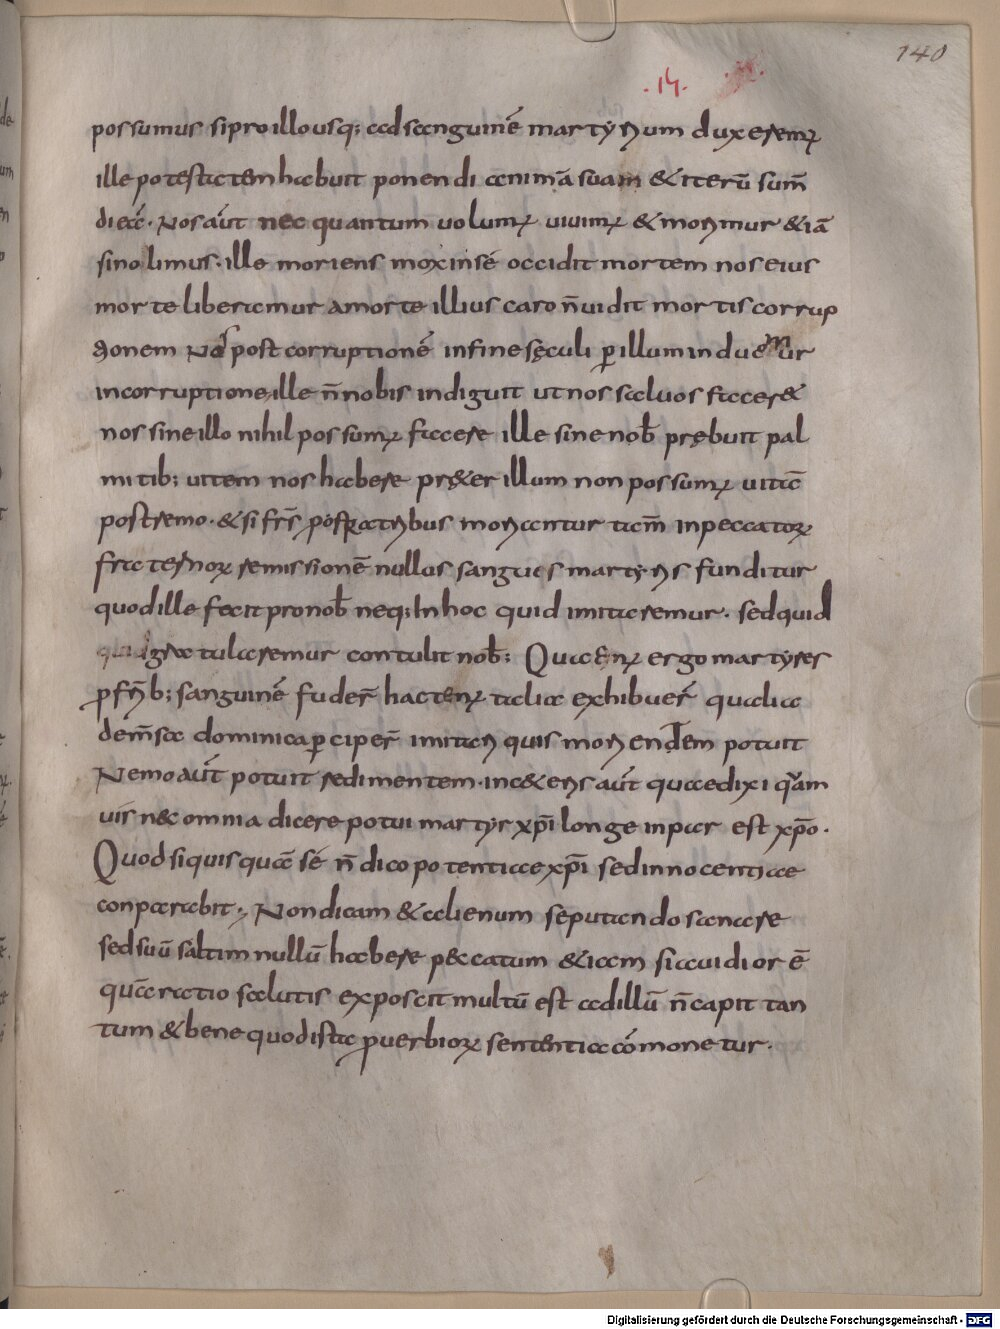 140
.14.
possumus sipro illo usq; ad sanguinē martyrum dux eremꝰ
ille potestatem habuit ponendi animā suam & iterū sum̄
diecē. Nos aūt nec quantum uolumꝰ uiuimꝰ & morimur & iā
sinolimus. ille moriens mox insé occidit mortem nos eius
morte liberamur a morte illius caro n̄ uidit mortis corrup
tionem Nos post corruptionē in fine sęculi ꝑ illum induemur
incorruptione ille n̄ nobis indiguit ut nos saluos facere&
nos sine illo nihil possumꝰ facere ille sine nob̄ prębuit pal
mitib; uitem nos habere pręter illum non possumꝰ uitā
postremo. & si fr̄s ꝓ fratribus moriantur tam̄ in peccatoꝝ
fraternoꝝ remissionē nullus sanguis martyris funditur
quod ille fecit pro nob̄ neq; In hoc quid imitaremur. sed quid
gratularemur contulit nob̄; Quatenꝰ ergo martyres
ꝓ frīb; sanguinē fuder̄ hactenꝰ talia exhibuer̄ qualia
dem̄sa dominica ꝑciper̄ imitari quis moriendem potuit
Nemo aūt potuit redimentem. in ceteris aūt quae dixi quam
uis nec omnia dicere potui martyr xp̄i longe inpar est xp̄o.
Quod si quis quā sé n̄ dico potentiae xp̄i sed innocentiae
conparabit; Non dicam & alienum se putando sanare
sed suū saltim nullū habere peccatum & iam si auidior ē
quā ratio salutis exposcit multū est ad illū n̄ capit tan
tum & bene quod ista ꝓuerbioꝝ sententia cómonetur.
Digitalisierung gefördert durch die Deutsche Forschungsgemeinschaft - DFG